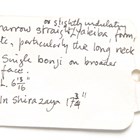 or slightly undulating
narrow straight yakiba form,
etc, particularly the long neck
Single bonji on broader
face.
L. 8 13/16"
In Shirazaya 17 3/4"